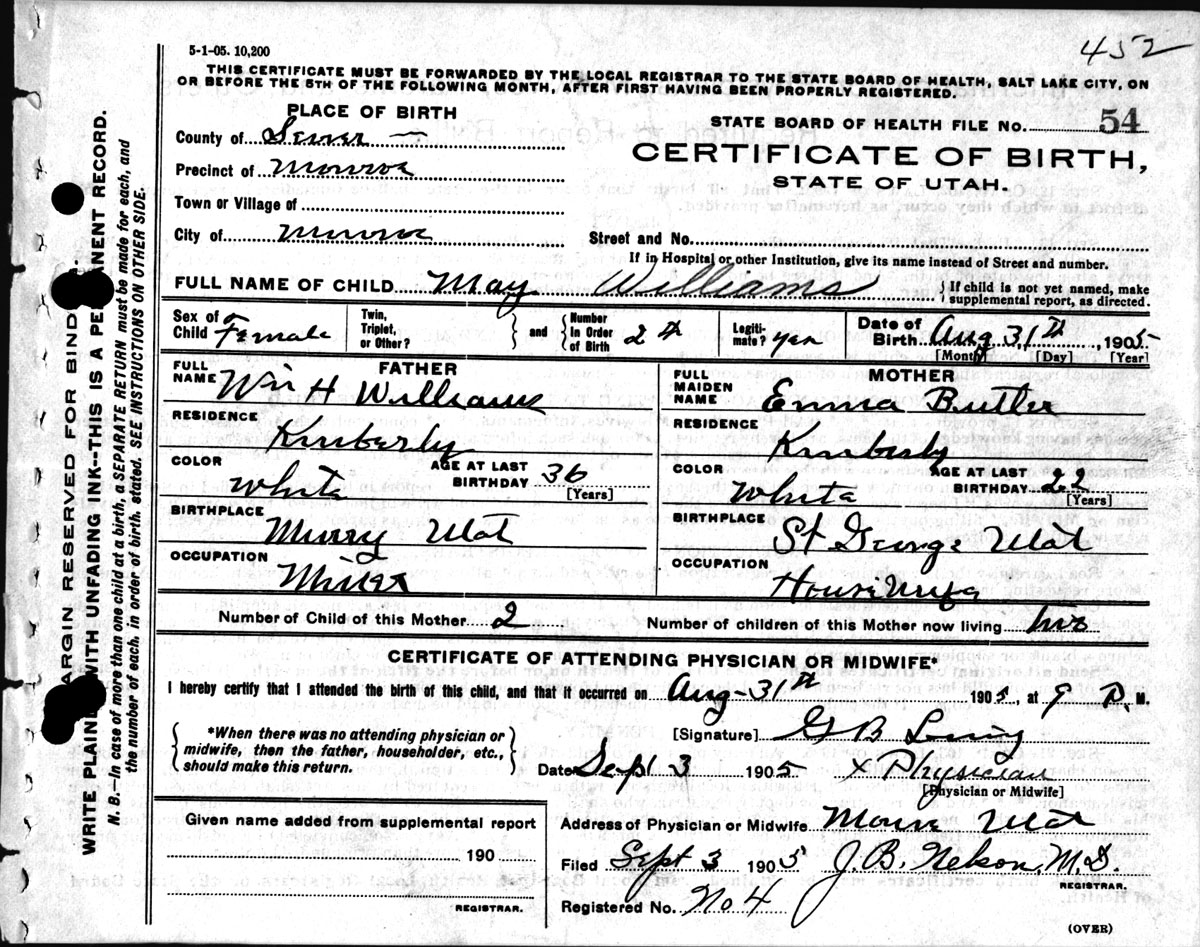 452
5-1-05. 10,200
THIS CERTIFICATE MUST BE FORWARDED BY THE LOCAL REGISTRAR TO THE STATE BOARD OF HEALTH, SALT LAKE CITY, ON
OR BEFORE THE 5TH OF THE FOLLOWING MONTH, AFTER FIRST HAVING BEEN PROPERLY REGISTERED.
PLACE OF BIRTH
County of Sevier
Precinct of Monroe
Town or Village of
City of Monroe
STATE BOARD OF HEALTH FILE No. 54
CERTIFICATE OF BIRTH,
STATE OF UTAH.
Street and No.
If in Hospital or other Institution, give its name instead of Street and number.
FULL NAME OF CHILD May Williams { If child is not yet named, make
supplemental report, as directed.
Sex of Child Female
Twin, Triplet, or Other?
and
Number in Order of Birth 2th
Legiti-mate? yes
Date of Birth Aug 31th, 1905
[Month] [Day] [Year]
FATHER
FULL NAME Wm H Williams
RESIDENCE
Kimberly
COLOR White
AGE AT LAST BIRTHDAY 36
[Years]
BIRTHPLACE
Murry Utah
OCCUPATION
Miner
MOTHER
FULL MAIDEN NAME Emma Butler
RESIDENCE
Kimberly
COLOR White
AGE AT LAST BIRTHDAY 22
[Years]
BIRTHPLACE
St George Utah
OCCUPATION
House Wife
Number of Child of this Mother 2
Number of children of this Mother now living two
CERTIFICATE OF ATTENDING PHYSICIAN OR MIDWIFE*
I hereby certify that I attended the birth of this child, and that it occurred on Aug-31th 1905, at 9 P. M.
{ *When there was no attending physician or
midwife, then the father, householder, etc.,
should make this return. }
[Signature] G B
Date Sept 3 1905 x Physician
[Physician or Midwife]
Given name added from supplemental report
190
REGISTRAR.
Address of Physician or Midwife Monroe Utah
Filed Sept 3 1905 J. B. Nelson, M.D.
REGISTRAR.
Registered No. No 4
(OVER)
MARGIN RESERVED FOR BINDING
WRITE PLAINLY WITH UNFADING INK--THIS IS A PERMANENT RECORD.
N. B.--In case of more than one child at a birth, a SEPARATE RETURN must be made for each, and
the number of each, in order of birth, stated. SEE INSTRUCTIONS ON OTHER SIDE.